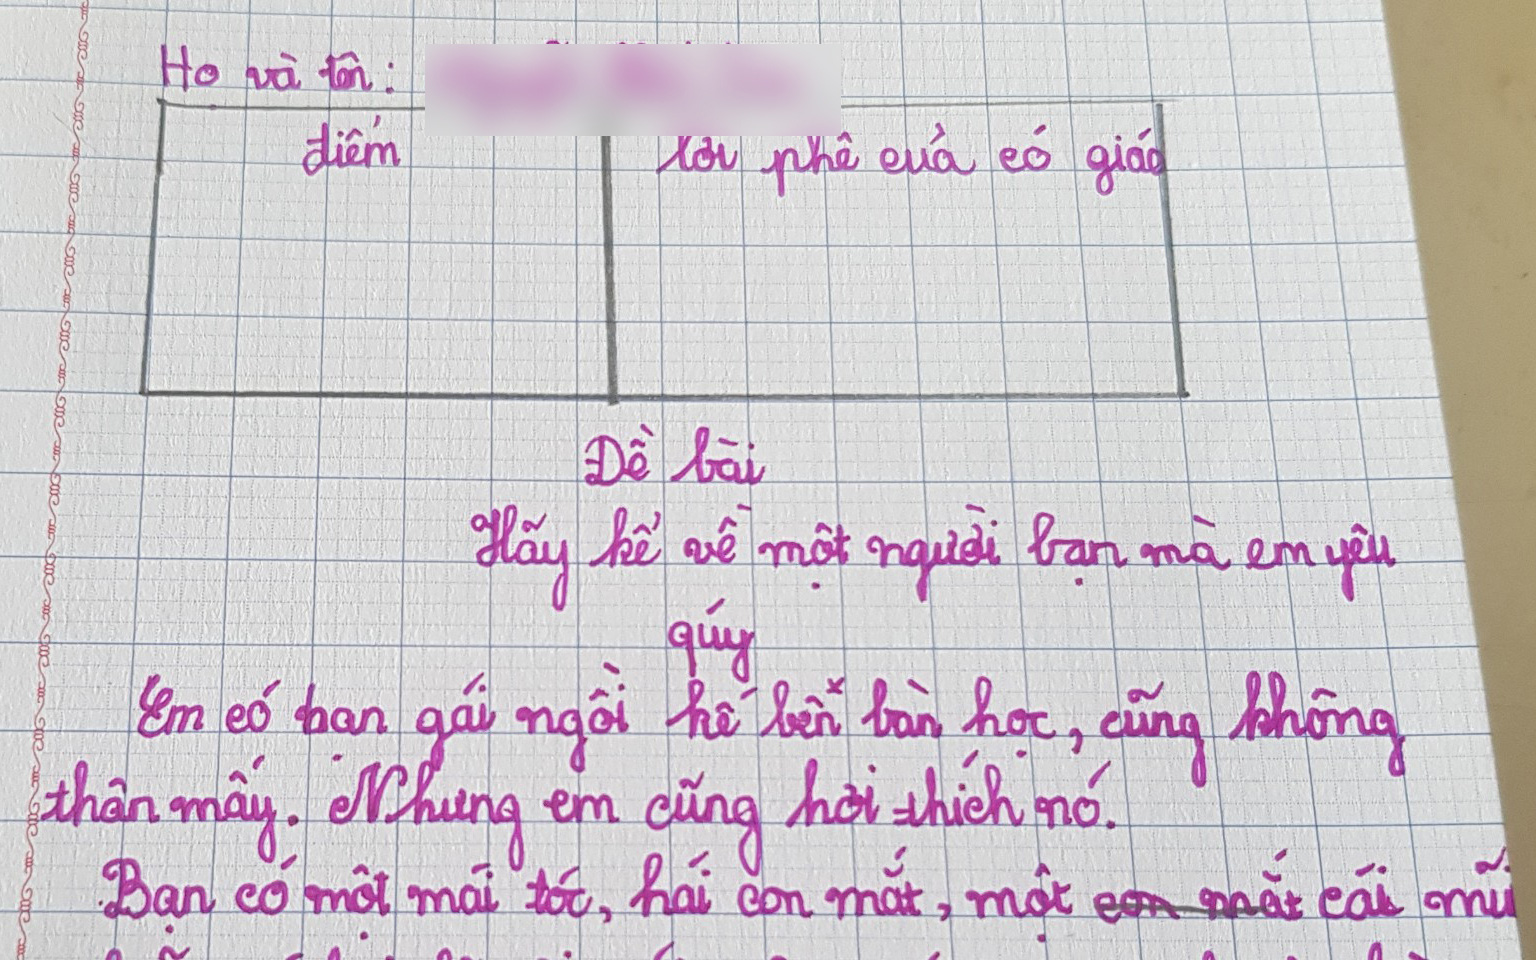 Họ và tên:
điểm
lời phê của cô giáo
Đề bài
Hãy kể về một người bạn mà em yêu
quý
Em có bạn gái ngồi kế bên bàn học, cũng không
thân mấy. Nhưng em cũng hơi thích nó.
Bạn có một mái tóc, hai con mắt, một con mắt cái mũi